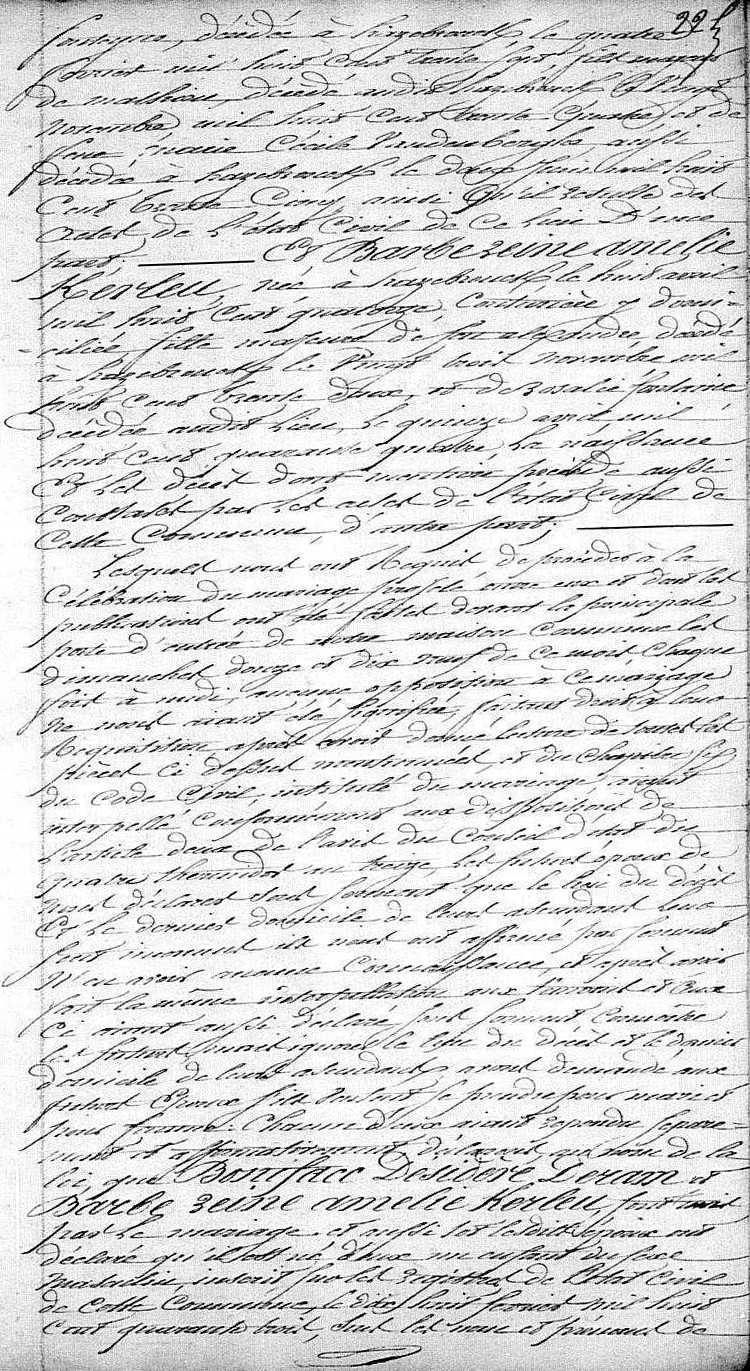 22
décédée à hazebrouck, le quatre
février mil huit cent trente sept, fils majeur
de mathieu, décédé audit hazebrouck le vingt
novembre mil huit cent trente quatre, et de
feue marie Cécile Vandenberghe, aussi
décédée à hazebrouck le deux juin mil huit
cent trente cinq, ainsi qu'il résulte des
actes de l'état Civil de ce lieu D'une
part, Et Barbe reine amelie
Kerleu, née à hazebrouck, le huit avril
mil huit cent quatorze, y domi-
ciliée, fille majeure de alexandre, décédé
à hazebrouck le vingt trois novembre mil
huit cent trente deux, et de rosalie fontaine
décédée audit lieu, le quinze avril mil
huit cent quarante quatre, la naissance
Et les décès dont mention précède aussi
constatés par les actes de l'état Civil de
cette Commune, d'autre part;
Lesquels nous ont requis de procéder à la
célébration du mariage projeté entre eux et dont les
publications ont été faites devant la principale
porte d'entrée de notre maison commune les
dimanches douze et dix neuf de ce mois, chaque
fois à midi, aucune opposition à ce mariage
ne nous aiant été signifiée, faisant droit à leur
réquisition, après avoir donné lecture de toutes les
pièces ci dessus mentionnées, et du chapitre six
du Code Civil, intitulé du mariage, aiant
interpellé conformément aux dispositions de
l'article deux de l'avis du Conseil d'état du
quatre thermidor an treize, les futurs époux de
nous déclarer sous serment que le lieu du décès
Et le dernier domicile de leurs ascendans leur
sont inconnus ils nous ont affirmé par serment
n'en avoir aucune connaissance, et après avoir
fait la même interpellation aux témoins et ceux
ci aiant aussi déclaré sous serment connaître
les futurs, mais ignorer le lieu du décès et le dernier
domicile de leurs ascendans, avons demandé aux
futurs Epoux s'ils veulent se prendre pour mari et
pour femme: Chacun d'eux aiant répondu séparé-
ment et affirmativement, déclarons au nom de la
loi, que Boniface Desidère Deram et
Barbe reine amelie Kerleu, sont unis
par le mariage. et aussi tôt lesdits époux ont
déclaré qu'il est né d'eux un enfant du sexe
masculin, inscrit sur les registres de l'état Civil
de cette Commune, le dix huit février mil huit
cent quarante trois, sous les nom et prénoms de